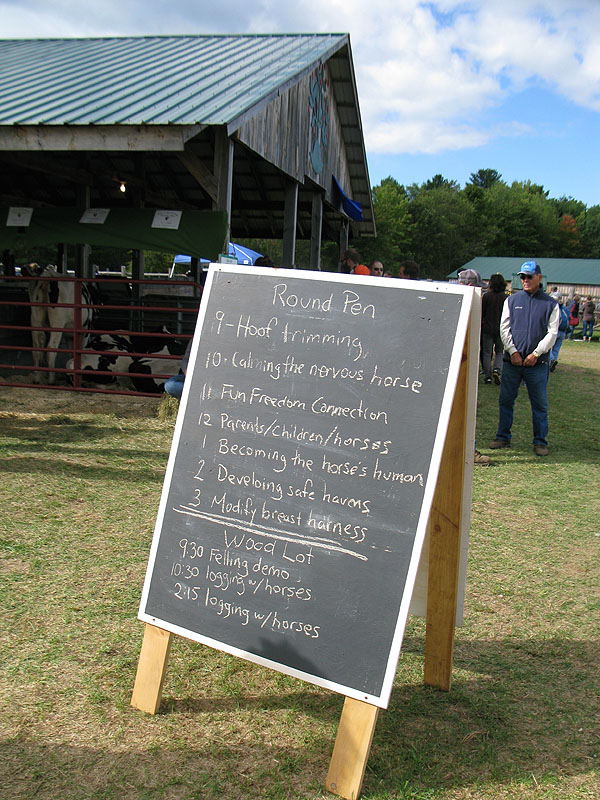 Round Pen
9 - Hoof trimming
10 - Calming the nervous horse
11 Fun Freedom Connection
12 Parents/children/horses
1 Becoming the horse's human
2 Develoing safe havens
3 Modify breast harness
Wood Lot
9:30 Felling demo
10:30 logging w/horses
2:15 logging w/horses